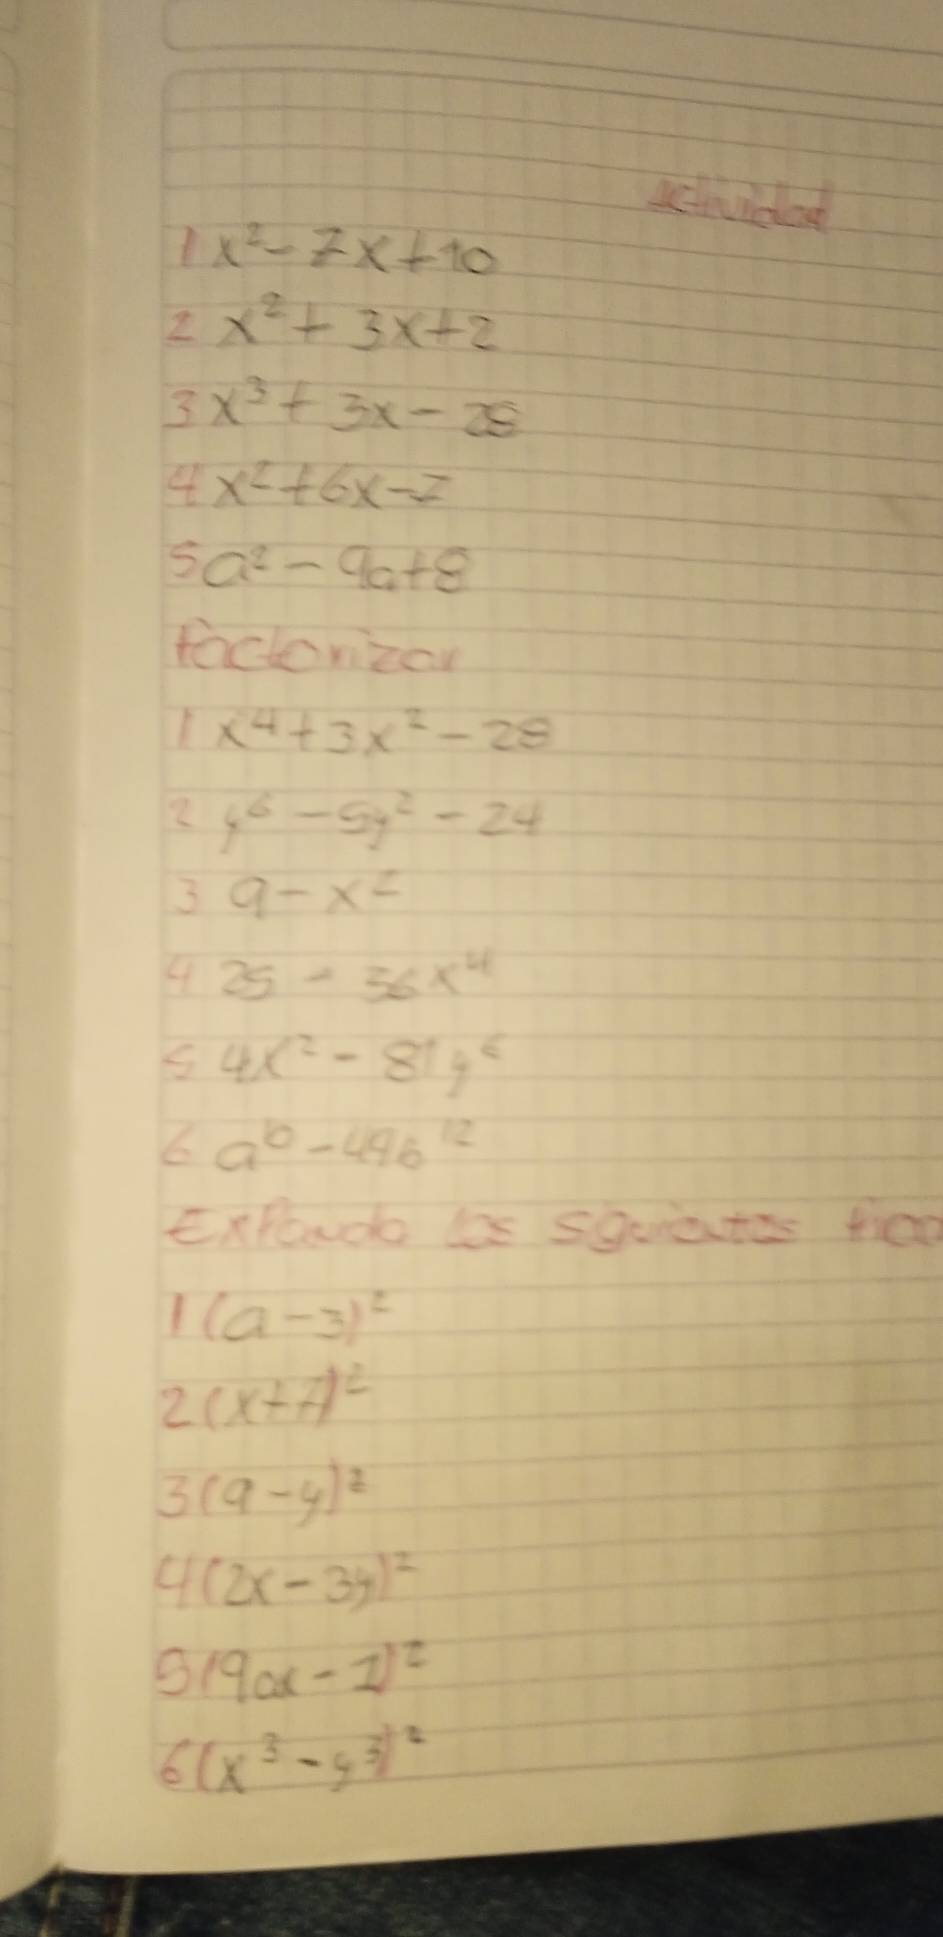 Actividad
1 x² - 7x + 10
2 x² + 3x + 2
3 x³ + 3x - 28
4 x² + 6x - 7
5 a² - 9a + 8
Factorizar
1 x⁴ + 3x² - 28
2 y⁶ - 5y² - 24
3 9 - x²
4 25 - 36x⁴
5 4x² - 81y⁶
6 a⁶ - 49b¹²
los siguientes
1 (a - 3)²
2 (x + 7)²
3 (9 - y)²
4 (2x - 3y)²
5 (9ax - 1)²
6 (x³ - y³)²